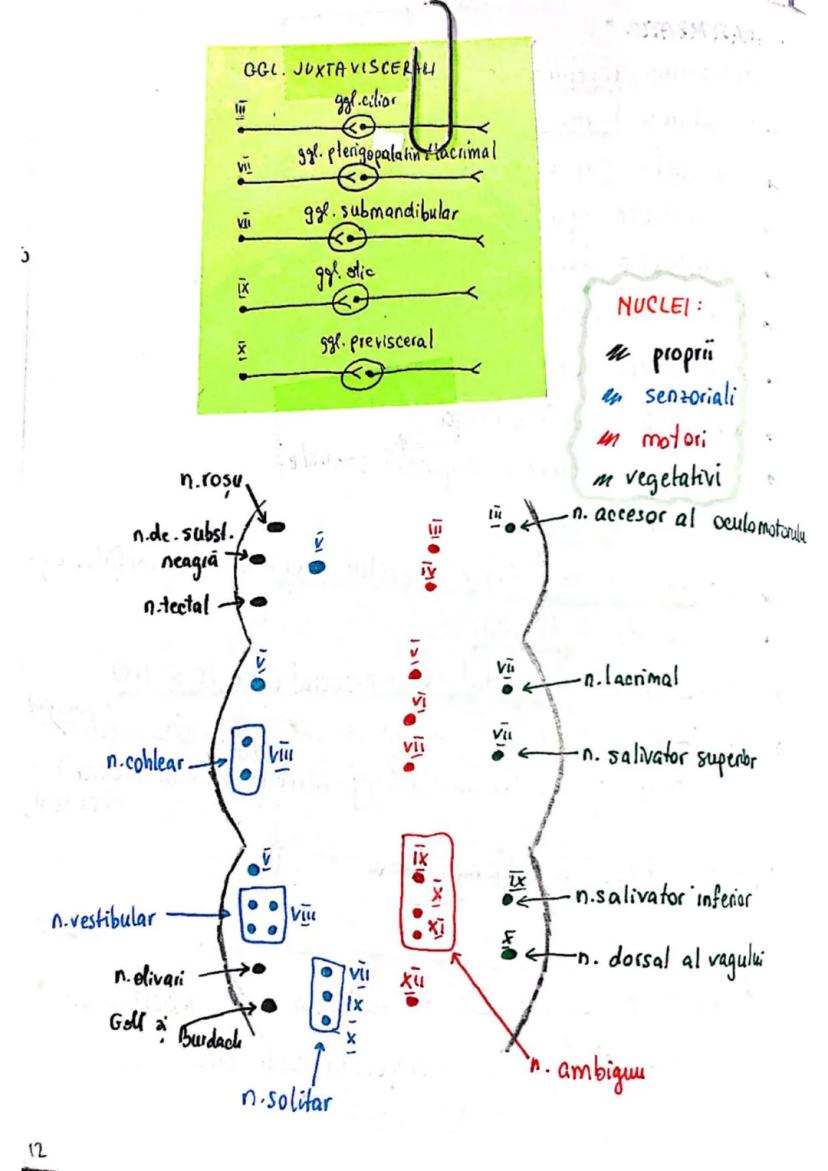 GGL. JUXTAVISCERALI
ggl. ciliar
III
ggl. pterigopalatin/lacrimal
VII
ggl. submandibular
VII
ggl. otic
IX
ggl. previsceral
X
NUCLEI:
proprii
senzoriali
motori
vegetativi
n. roșu
n. de subst.
neagră
n. tectal
V
III
IV
III
n. accesor al oculomotorului
V
V
VI
VII
VII
n. lacrimal
n. cohlear
VIII
VII
n. salivator superior
V
IX
X
XI
IX
n. salivator inferior
n. vestibular
VIII
X
n. dorsal al vagului
n. olivari
Goll și
Burdach
VII
IX
X
XII
n. solitar
n. ambiguu
12